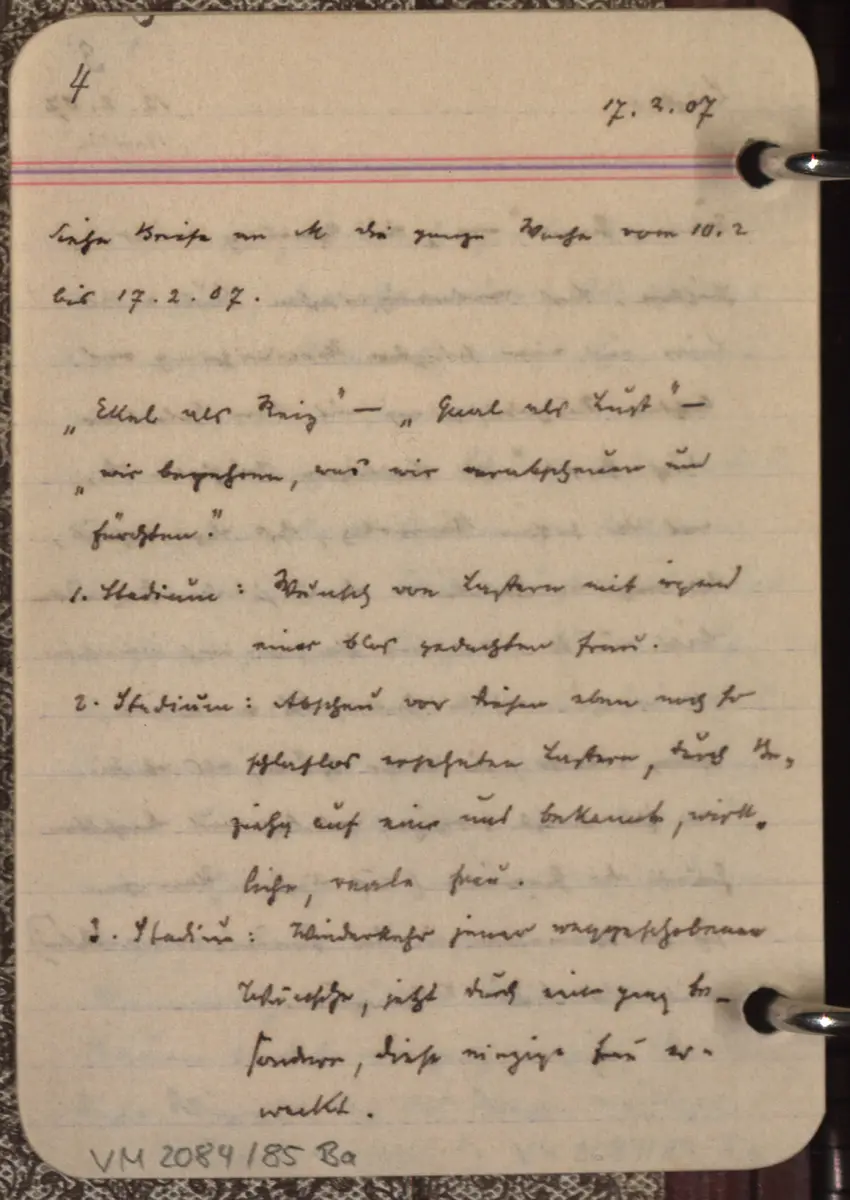 4
17. 2. 07
Siehe Briefe an M die ganze Woche vom 10. 2
bis 17. 2. 07.
„Ekel als Reiz" — „Qual als Lust" —
„wir begehren, was wir verabscheuen und
fürchten."
1. Stadium: Wunsch von Lastern mit irgend
einer blos gedachten Frau.
2. Stadium: Abscheu vor diesen eben noch so
schlaflos ersehnten Lastern, durch Be-
ziehg auf eine uns bekannte, wirk-
liche, reale Frau.
3. Stadium: Wiederkehr jener weggeschobenen
Wünsche, jetzt durch eine ganz be-
sondere, diese einzige Frau er-
weckt.
VM 2084/85 Ba